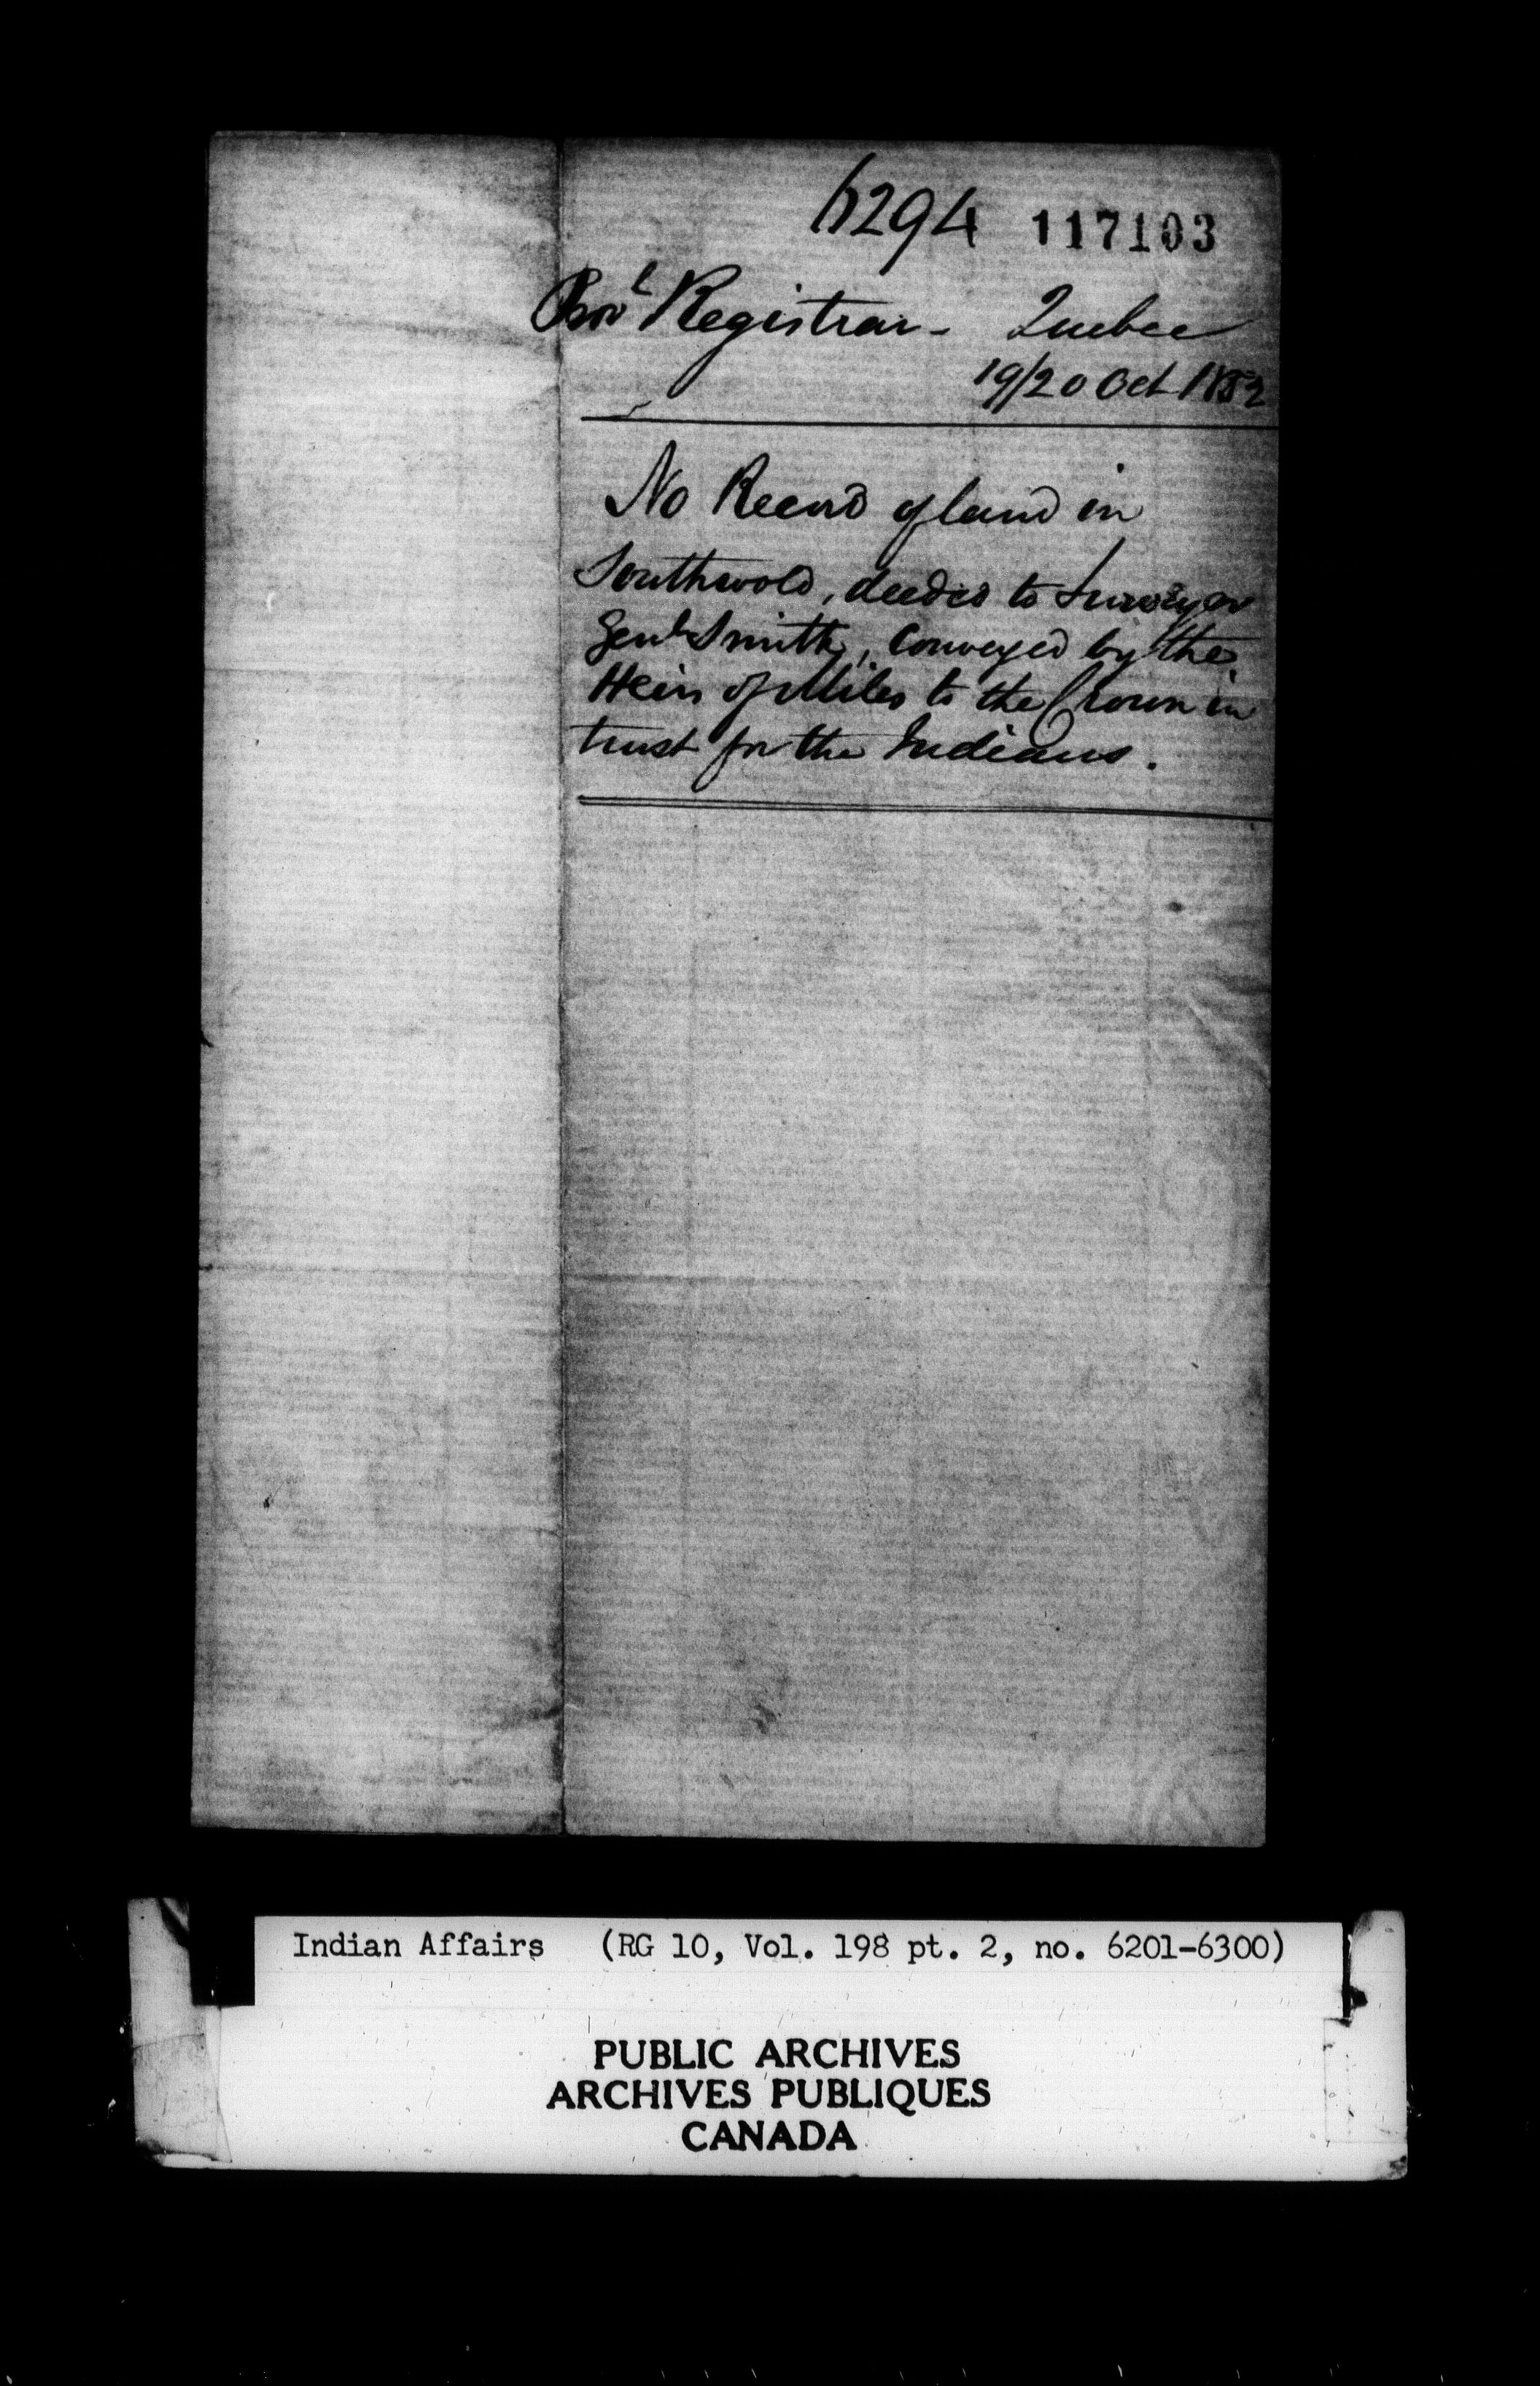 6294 117103
Prov^l Registrar - Quebec
19/20 Oct 1852
No Record of land in
Southwold, deeded to Surveyor
Genl Smith, Conveyed by the
Heirs of Miles to the Crown in
trust for the Indians.
Indian Affairs (RG 10, Vol. 198 pt. 2, no. 6201-6300)
PUBLIC ARCHIVES
ARCHIVES PUBLIQUES
CANADA